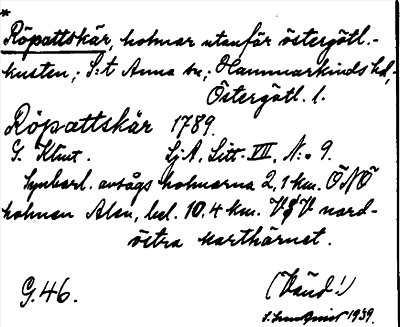 *
Röpattskär, holmar utanför östergötl.-
kusten; S:t Anna sn; Hammarkinds hd,
Östergötl. l.
Röpattskär 1789.
G. Klint. SjA, Litt. VII, N:o 9.
Synbarl. avsågs holmarna 2,1 km. ÖNÖ
holmen Alen, bel. 10,4 km. VSV nord-
östra karthörnet.
G. 46. (Vänd!)
1939.